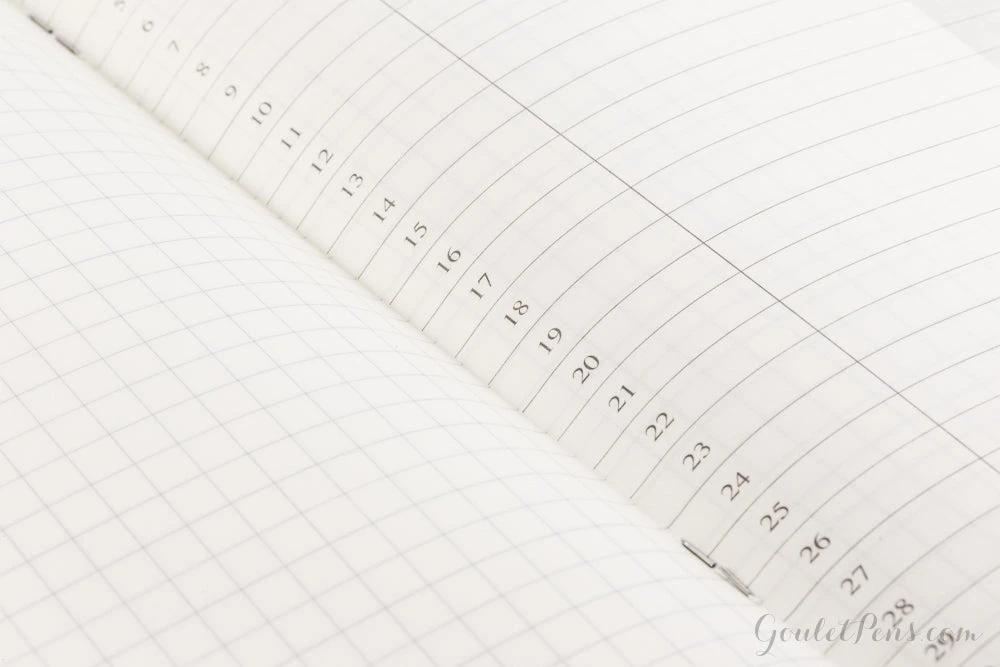 5
6
7
8
9
10
11
12
13
14
15
16
17
18
19
20
21
22
23
24
25
26
27
28
29
GouletPens.com